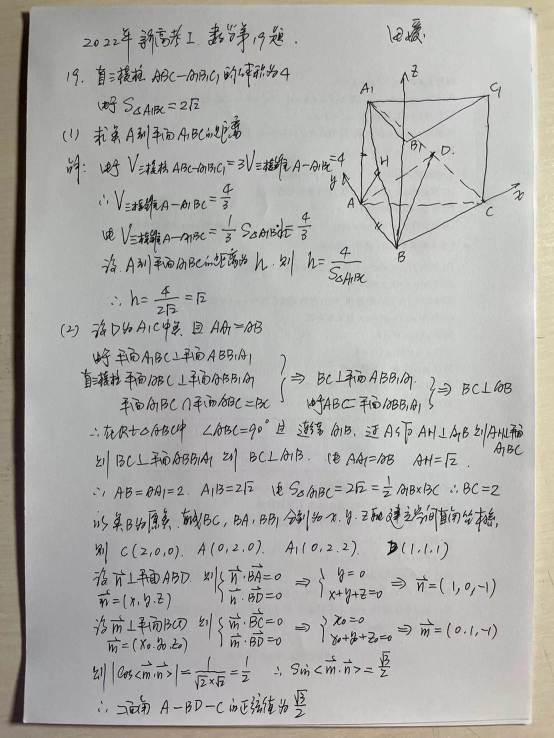 2022年新高考I 数学第19题.
19. 直三棱柱 ABC-A₁B₁C₁ 的体积为4
由于 S△A₁BC=2√2
(1) 求点A到平面A₁BC的距离
解: 由于 V三棱柱 ABC-A₁B₁C₁=3V三棱锥 A-A₁BC=4
∴ V三棱锥 A-A₁BC=4/3
由 V三棱锥 A-A₁BC=1/3 S△A₁BC·h=4/3
设 A到平面A₁BC的距离为 h. 则 h=4/S△A₁BC
∴ h=4/2√2=√2
(2) 设D为A₁C中点 且 AA₁=AB
由于 平面A₁BC⊥平面ABB₁A₁
直三棱柱 平面ABC⊥平面ABB₁A₁ ⇒ BC⊥平面ABB₁A₁. ⇒ BC⊥AB
平面A₁BC∩平面ABC=BC 由于AB⊂平面ABB₁A₁
∴在Rt△ABC中 ∠ABC=90° 连结 A₁B. 过A作 AH⊥A₁B 则AH⊥平面A₁BC
则 BC⊥平面ABB₁A₁ 则 BC⊥A₁B. 由 AA₁=AB AH=√2.
∴ AB=AA₁=2. A₁B=2√2 由 S△A₁BC=2√2=1/2 A₁B×BC ∴ BC=2
以点B为原点. BC, BA, BB₁ 分别为x. y. z轴建立空间直角坐标系,
则 C(2,0,0). A(0,2,0). A₁(0,2,2). D(1,1,1)
设 n⊥平面ABD. 则 { n·BA=0 ⇒ { y=0
n=(x,y,z) n·BD=0 x+y+z=0 ⇒ n=(1,0,-1)
设 m⊥平面BCD 则 { m·BC=0 ⇒ { x₀=0
m=(x₀,y₀,z₀) m·BD=0 x₀+y₀+z₀=0 ⇒ m=(0,1,-1)
则 |cos<m·n>|=1/√2×√2=1/2 ∴ Sin<m·n>=√3/2
∴ 二面角 A-BD-C的正弦值为√3/2
A₁
z
C₁
B₁
D.
H
y
A
C
x
B